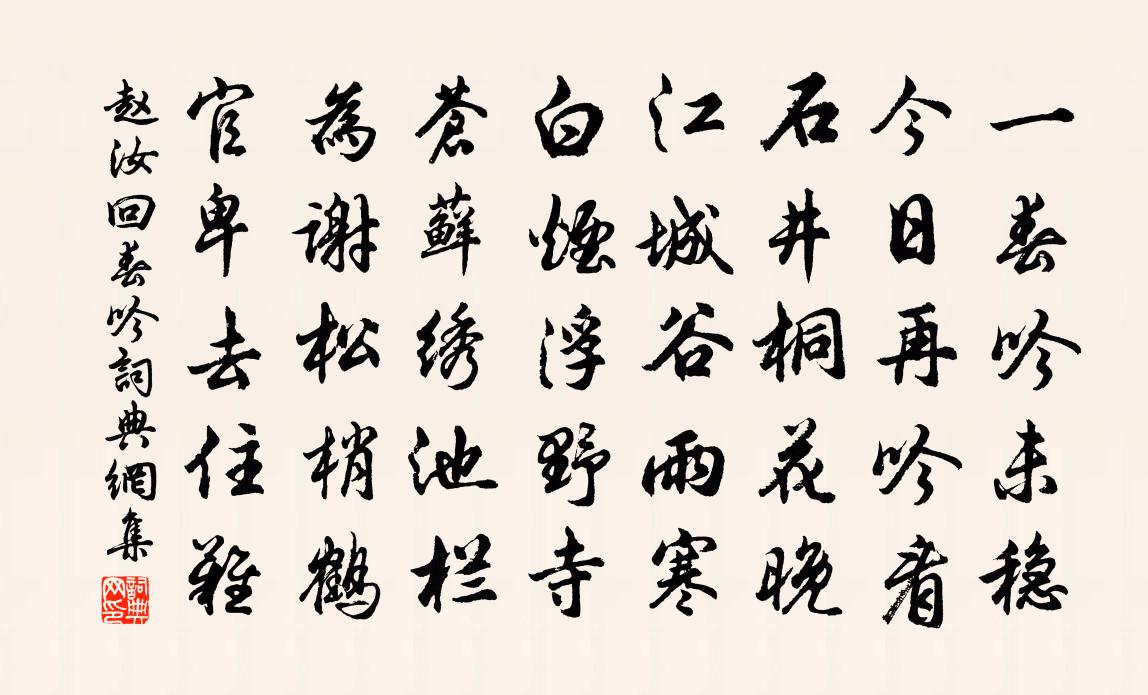 一春吟未稳
今日再吟看
石井桐花晚
江城谷雨寒
白烟浮野寺
苍藓绣池栏
為谢松梢鹤
官卑去住难
赵汝回春吟詞典網集
詞典网印